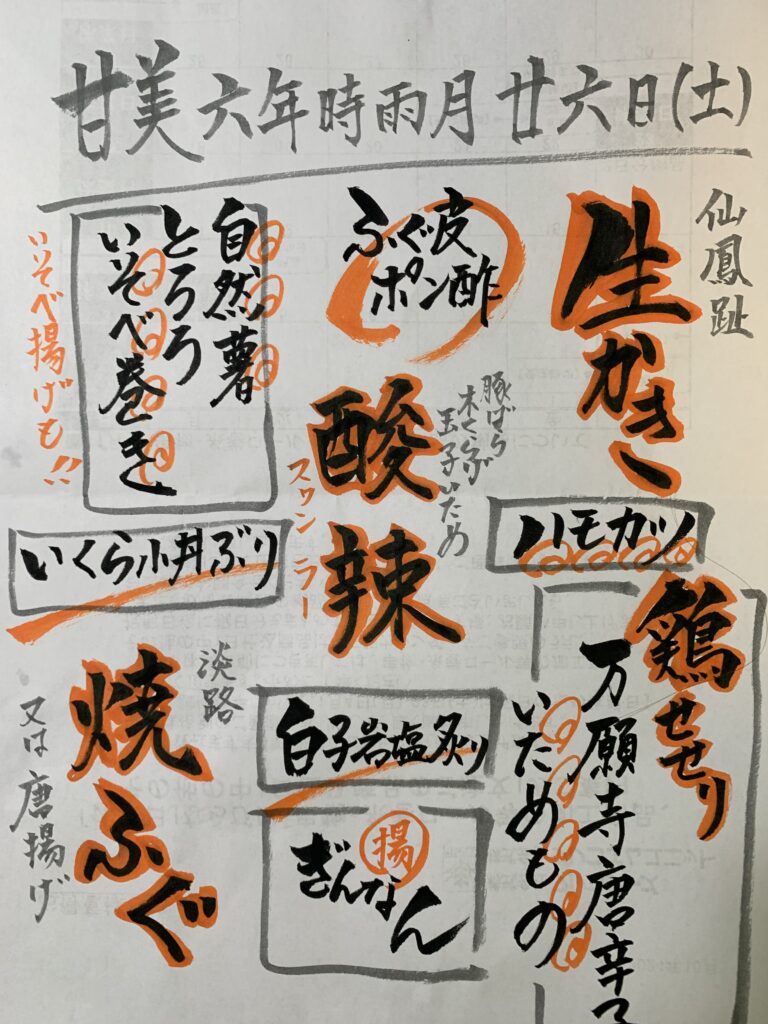 甘美六年時雨月廿六日(土)
仙鳳趾
生かき
ハモカツ
鶏せせり
万願寺唐辛子
いためもの
ふぐ皮
ポン酢
豚ばら
木くらげ
玉子いため
酸辣
スワンラー
白子岩塩炙り
揚
ぎんなん
自然薯
とろろ
いそべ巻き
いそべ揚げも!!
いくら小丼ぶり
淡路
焼ふぐ
又は唐揚げ